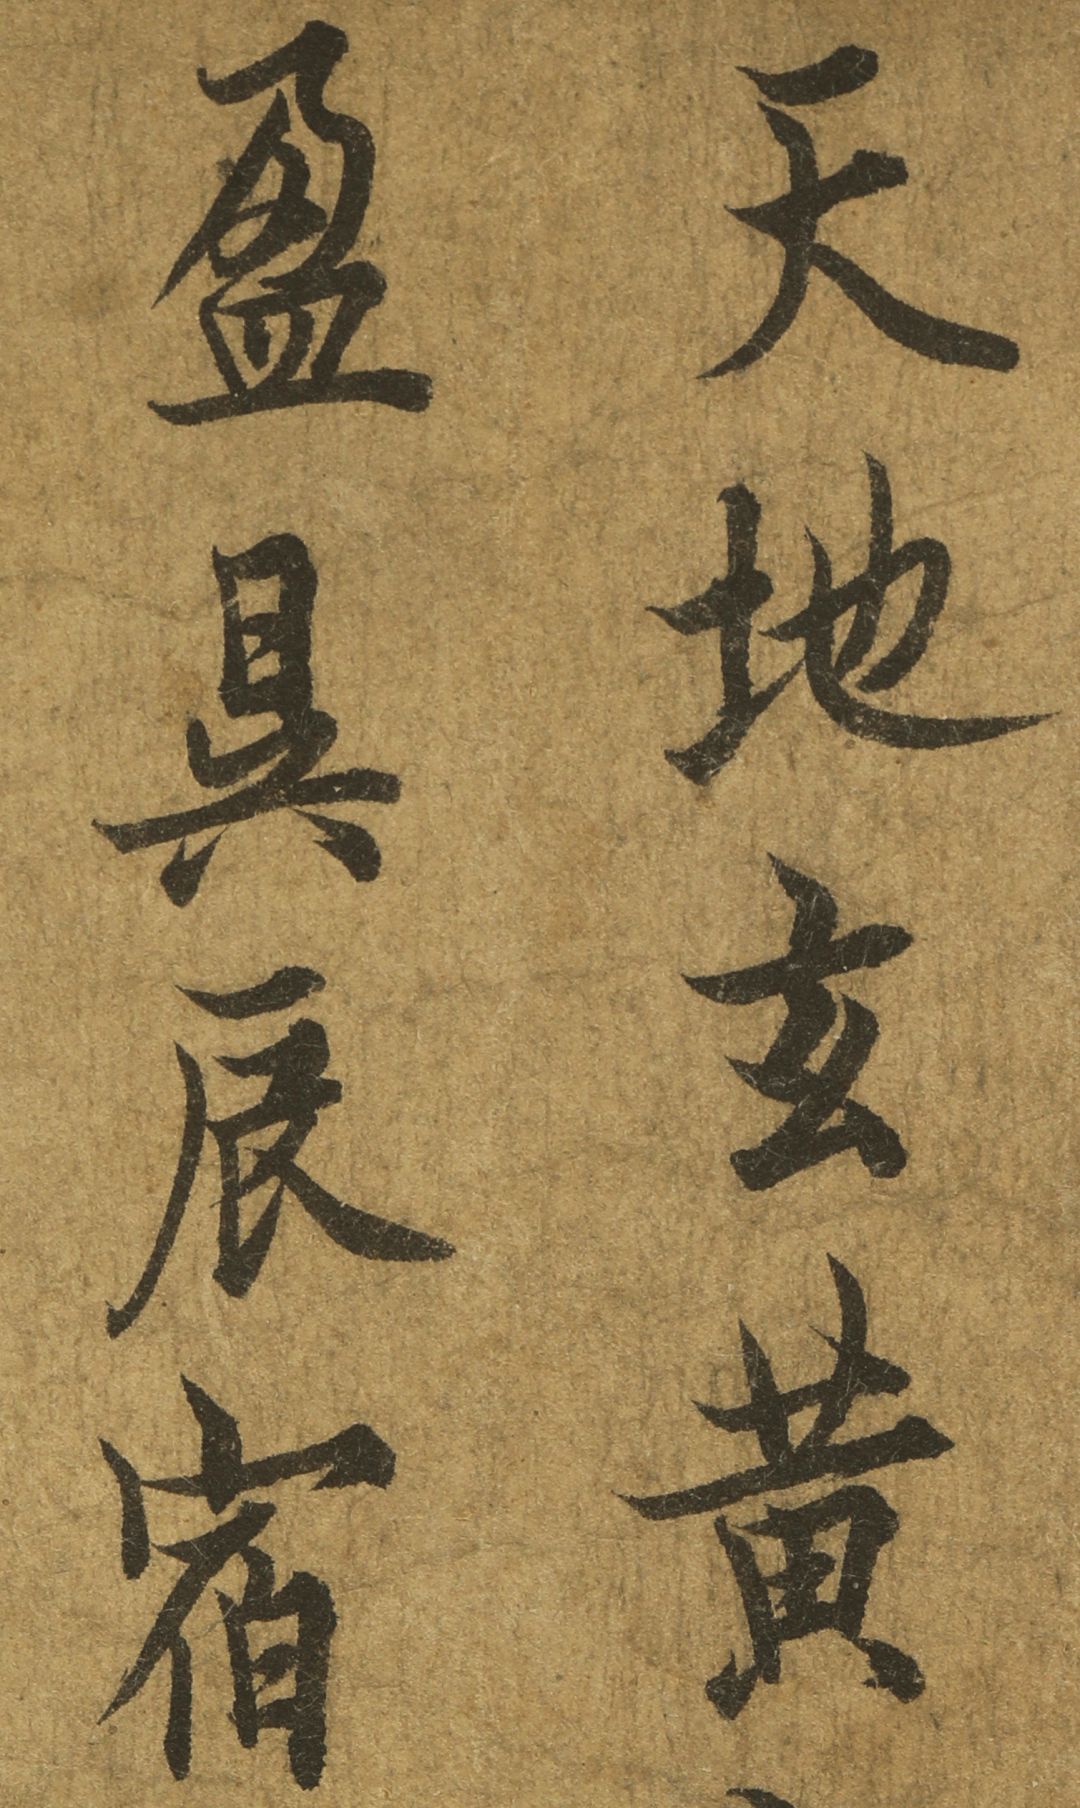 天地玄黄
盈昃辰宿